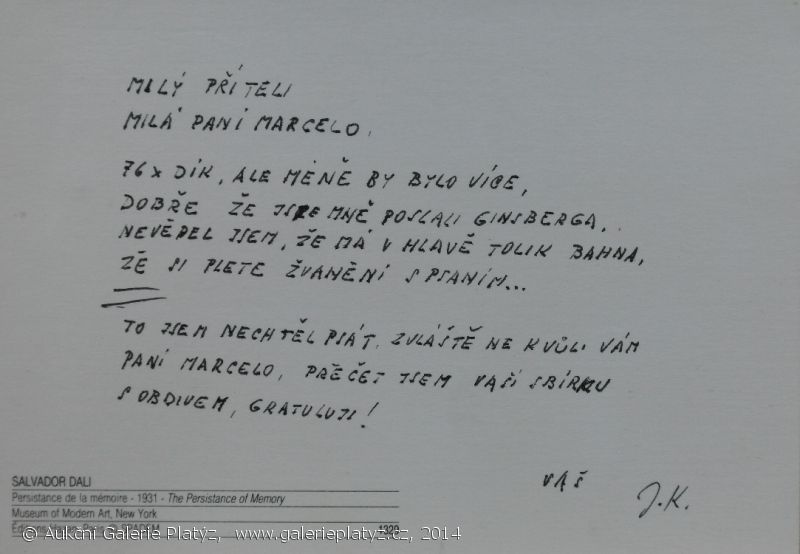 MILÝ PŘÍTELI
MILÁ PANÍ MARCELO,
76x DÍK, ALE MÉNĚ BY BYLO VÍCE,
DOBŘE ŽE JSTE MNĚ POSLALI GINSBERGA,
NEVĚDEL JSEM, ŽE MÁ V HLAVĚ TOLIK BAHNA,
ŽE SI PLETE ŽVANĚNÍ S PSANÍM...
TO JSEM NECHTĚL PSÁT, ZVLÁŠTĚ NE KVŮLI VÁM
PANÍ MARCELO, PŘEČET JSEM VAŠÍ SBÍRKU
S OBDIVEM, GRATULUJI!
VÁŠ J.K.
SALVADOR DALI
Persistance de la mémoire - 1931 - The Persistance of Memory
Museum of Modern Art, New York
1320
© Aukční Galerie Platýz, www.galerieplatyz.cz, 2014